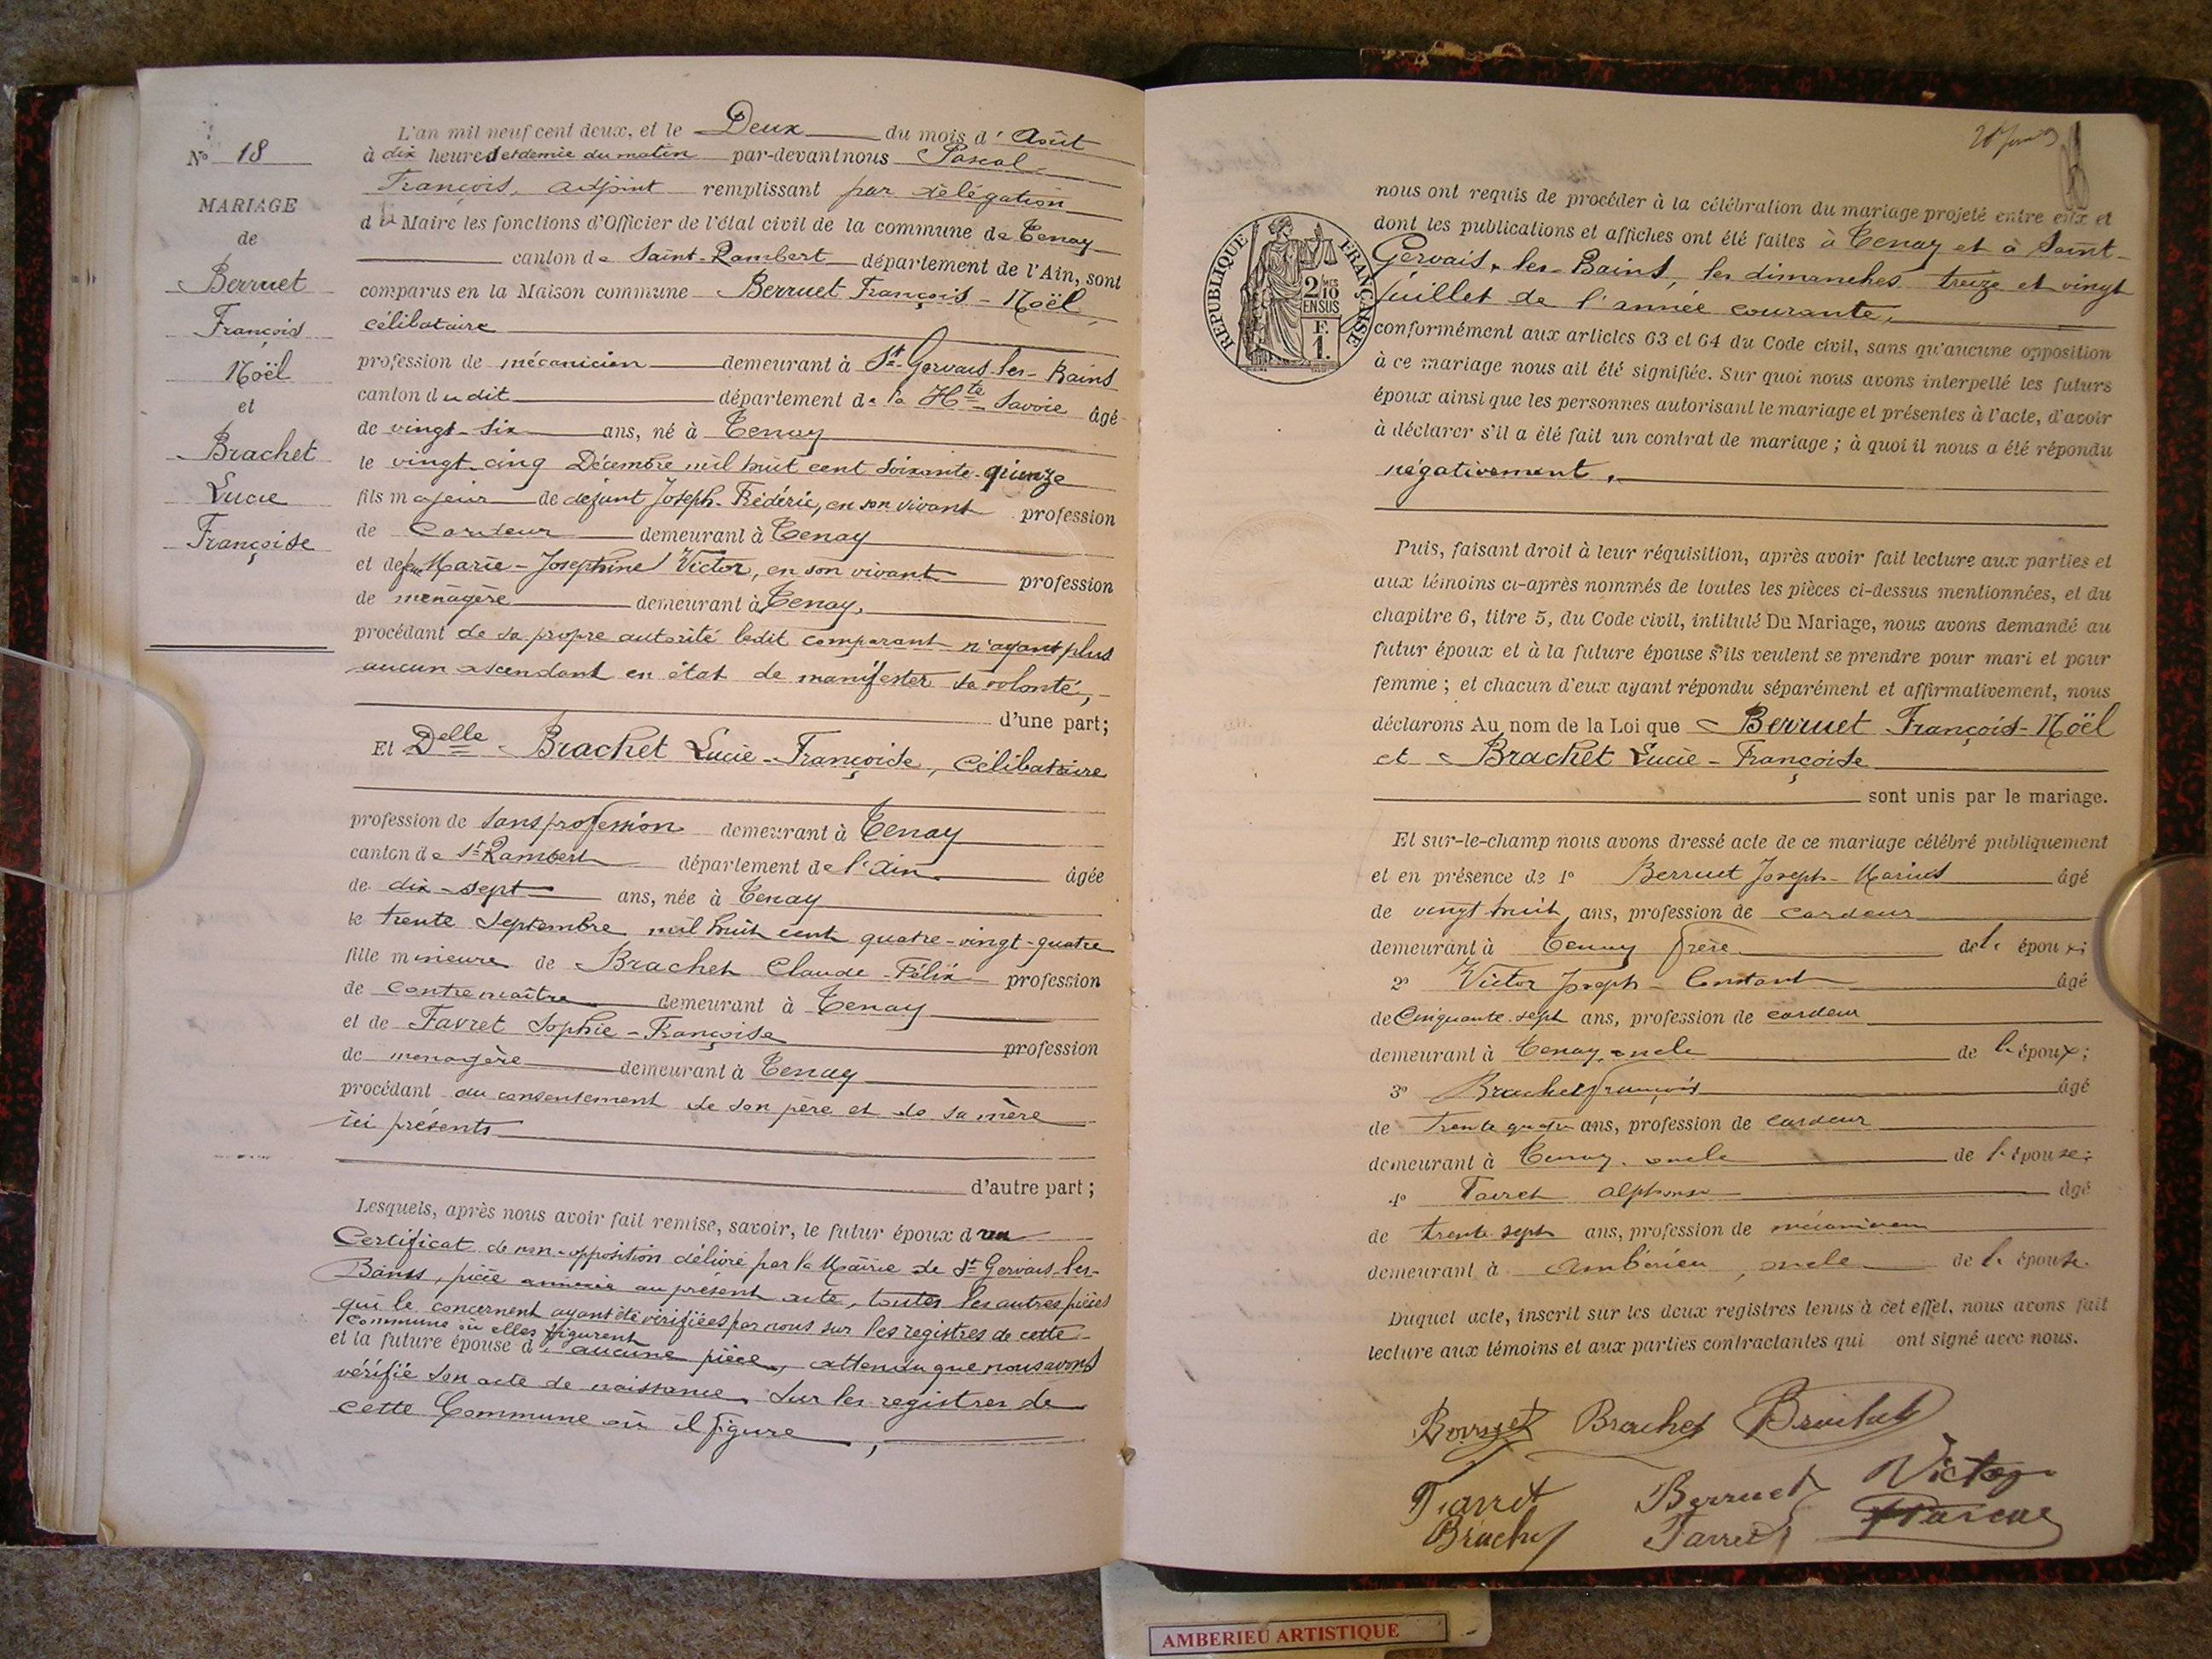 N° 18
MARIAGE
de
Berruet
François
Noël
et
Brachet
Lucie
Françoise
L'an mil neuf cent deux, et le Deux du mois d' Août
à dix heures et demie du matin par-devant nous Pascal
François, adjoint remplissant par délégation
du Maire les fonctions d'Officier de l'état civil de la commune de Tenay
canton de Saint-Rambert département de l'Ain, sont
comparus en la Maison commune Berruet François-Noël,
célibataire
profession de mécanicien demeurant à St-Gervais-les-Bains
canton dudit département de la Hte Savoie âgé
de vingt-six ans, né à Tenay
le vingt-cinq Décembre mil huit cent soixante-quinze
fils majeur de défunt Joseph-Frédéric, en son vivant profession
de Cardeur demeurant à Tenay
et de feu Marie-Josephine Victor, en son vivant profession
de ménagère demeurant à Tenay,
procédant de sa propre autorité ledit comparant n'ayant plus
aucun ascendant en état de manifester sa volonté,
d'une part;
Et Delle Brachet Lucie-Françoise, célibataire
profession de sans profession demeurant à Tenay
canton de St-Rambert département de l'Ain âgée
de dix-sept ans, née à Tenay
le trente Septembre mil huit cent quatre-vingt-quatre
fille mineure de Brachet Claude-Félix profession
de contremaître demeurant à Tenay
et de Favret Sophie-Françoise profession
de menagère demeurant à Tenay
procédant du consentement de son père et de sa mère
ici présents
d'autre part;
Lesquels, après nous avoir fait remise, savoir, le futur époux d'un
Certificat de non-opposition délivré par la Mairie de St Gervais-les-
Bains, pièce annexée au présent acte, toutes les autres pièces
qui le concernent ayant été vérifiées par nous sur les registres de cette
commune où elles figurent
et la future épouse d'aucune pièce, attendu que nous avons
vérifié son acte de naissance sur les registres de
cette Commune où il figure,
REPUBLIQUE FRANÇAISE
2 10 MES
EN SUS
F.
1.
nous ont requis de procéder à la célébration du mariage projeté entre eux et
dont les publications et affiches ont été faites à Tenay et à Saint-
Gervais-les-Bains, les dimanches treize et vingt
Juillet de l'année courante,
conformément aux articles 63 et 64 du Code civil, sans qu'aucune opposition
à ce mariage nous ait été signifiée. Sur quoi nous avons interpellé les futurs
époux ainsi que les personnes autorisant le mariage et présentes à l'acte, d'avoir
à déclarer s'il a été fait un contrat de mariage; à quoi il nous a été répondu
négativement.
Puis, faisant droit à leur réquisition, après avoir fait lecture aux parties et
aux témoins ci-après nommés de toutes les pièces ci-dessus mentionnées, et du
chapitre 6, titre 5, du Code civil, intitulé Du Mariage, nous avons demandé au
futur époux et à la future épouse s'ils veulent se prendre pour mari et pour
femme; et chacun d'eux ayant répondu séparément et affirmativement, nous
déclarons Au nom de la Loi que Berruet François-Noël
et Brachet Lucie-Françoise
sont unis par le mariage.
Et sur-le-champ nous avons dressé acte de ce mariage célébré publiquement
et en présence de 1° Berruet Joseph-Marius âgé
de vingt huit ans, profession de cardeur
demeurant à Tenay frère de l' époux;
2° Victor Joseph-Constant âgé
de Cinquante-sept ans, profession de cardeur
demeurant à Tenay, oncle de l'époux;
3° Brachet François âgé
de Trente quatre ans, profession de cardeur
demeurant à Tenay, oncle de l'épouse;
4° Favret Alphonse âgé
de trente sept ans, profession de mécanicien
demeurant à Ambérieu, oncle de l'épouse.
Duquel acte, inscrit sur les deux registres tenus à cet effet, nous avons fait
lecture aux témoins et aux parties contractantes qui ont signé avec nous.
Berruet Brachet Brachet
Favret Berruet Victor
Brachet Favret Pascal
AMBERIEU ARTISTIQUE